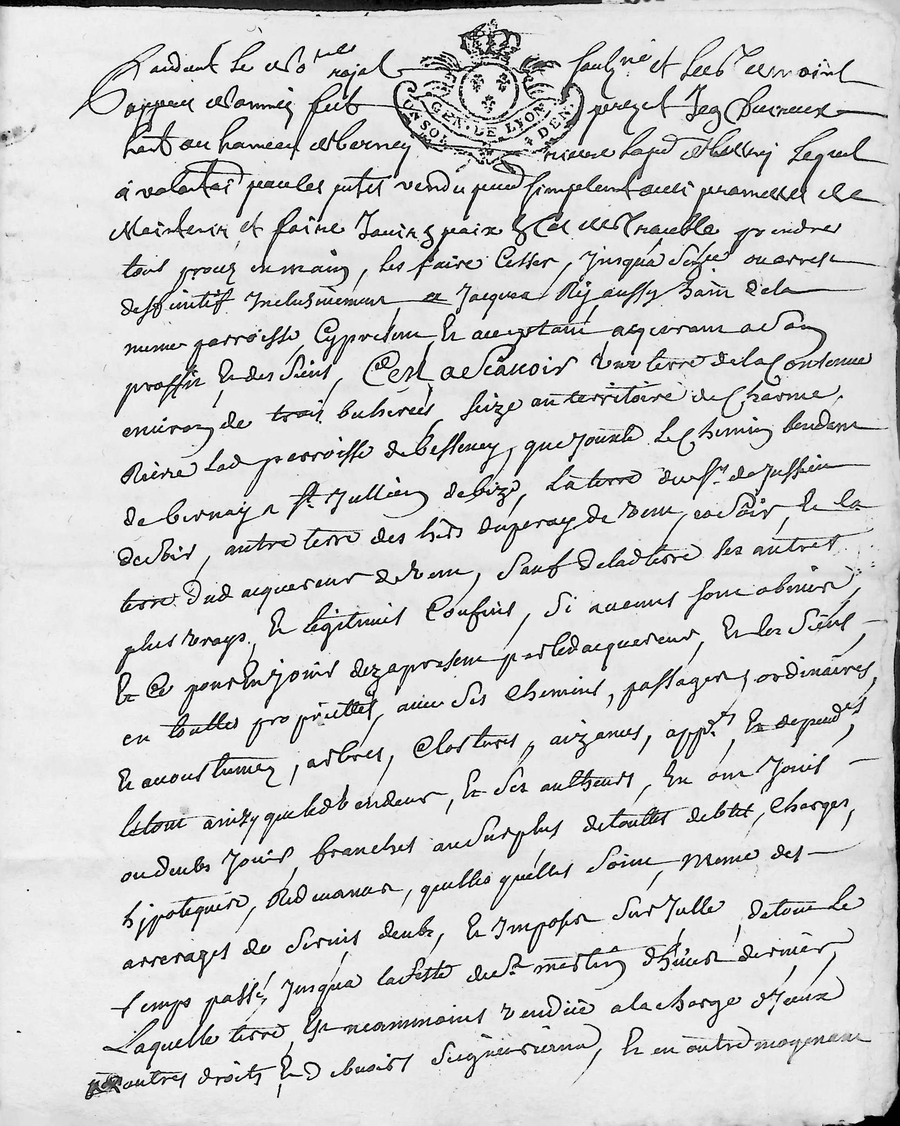 Pardevant le no.re royal soubz.né et les tesmoins
GEN. DE LYON
UN SOL DEN.
appres nommés fut
habt au hameau de bernay
riere lad. lequel
a vollontairement par les putes vendu purement simplement avec promesses de
Maintenir et faire Jouir paix de trouble prendre
tous procez en main, les faire Cesser, Jusqu'a ou arrest
deffinitif Inclusivement a Jacques Rij aussy habt de la
mesme parroisse Cypresent et acceptant acquereur a son
proffit Et des siens, C'est a scavoir une terre de la Contenue
environ de trois bicherées, size au territoire de Charme,
Riere lad. parroisse de bessenay, que Jouxte le Chemin tendant
de bernay a St Jullien de bize, La terre du Sr de Jussieu
de soir, autre terre des hers duperay de vent, et la
terre dud acquereur de vent, sauf de lad terre ses autres
plus vrays, Et legitimes Confins, si aucuns sont obmis,
Et Ce pour En jouir dez apresent par led acquereur, Et les siens
en touttes proprietés, avec ses chemins, passages, ordinaires,
Et accoustumez, arbres, Clostures, aizances, app.es, Et depend.es
le tout ainsy que led vendeur, Et ses autheurs, En ont Jouis
ou deubs Jouir, franches au surplus de touttes debtes, Charges,
hypoteques, Redevances, quelles qu'elles soient, mesme des
arrerages de servis deubs, Et Imposés sur Icelle, de tout le
temps passé, Jusqu'a la feste de St martin d'hiver dernier,
Laquelle terre, Est neammoins vendüe a la charge d'Iceux
autres droits, Et debvoirs seigneuriaux, Et en outre moyenant